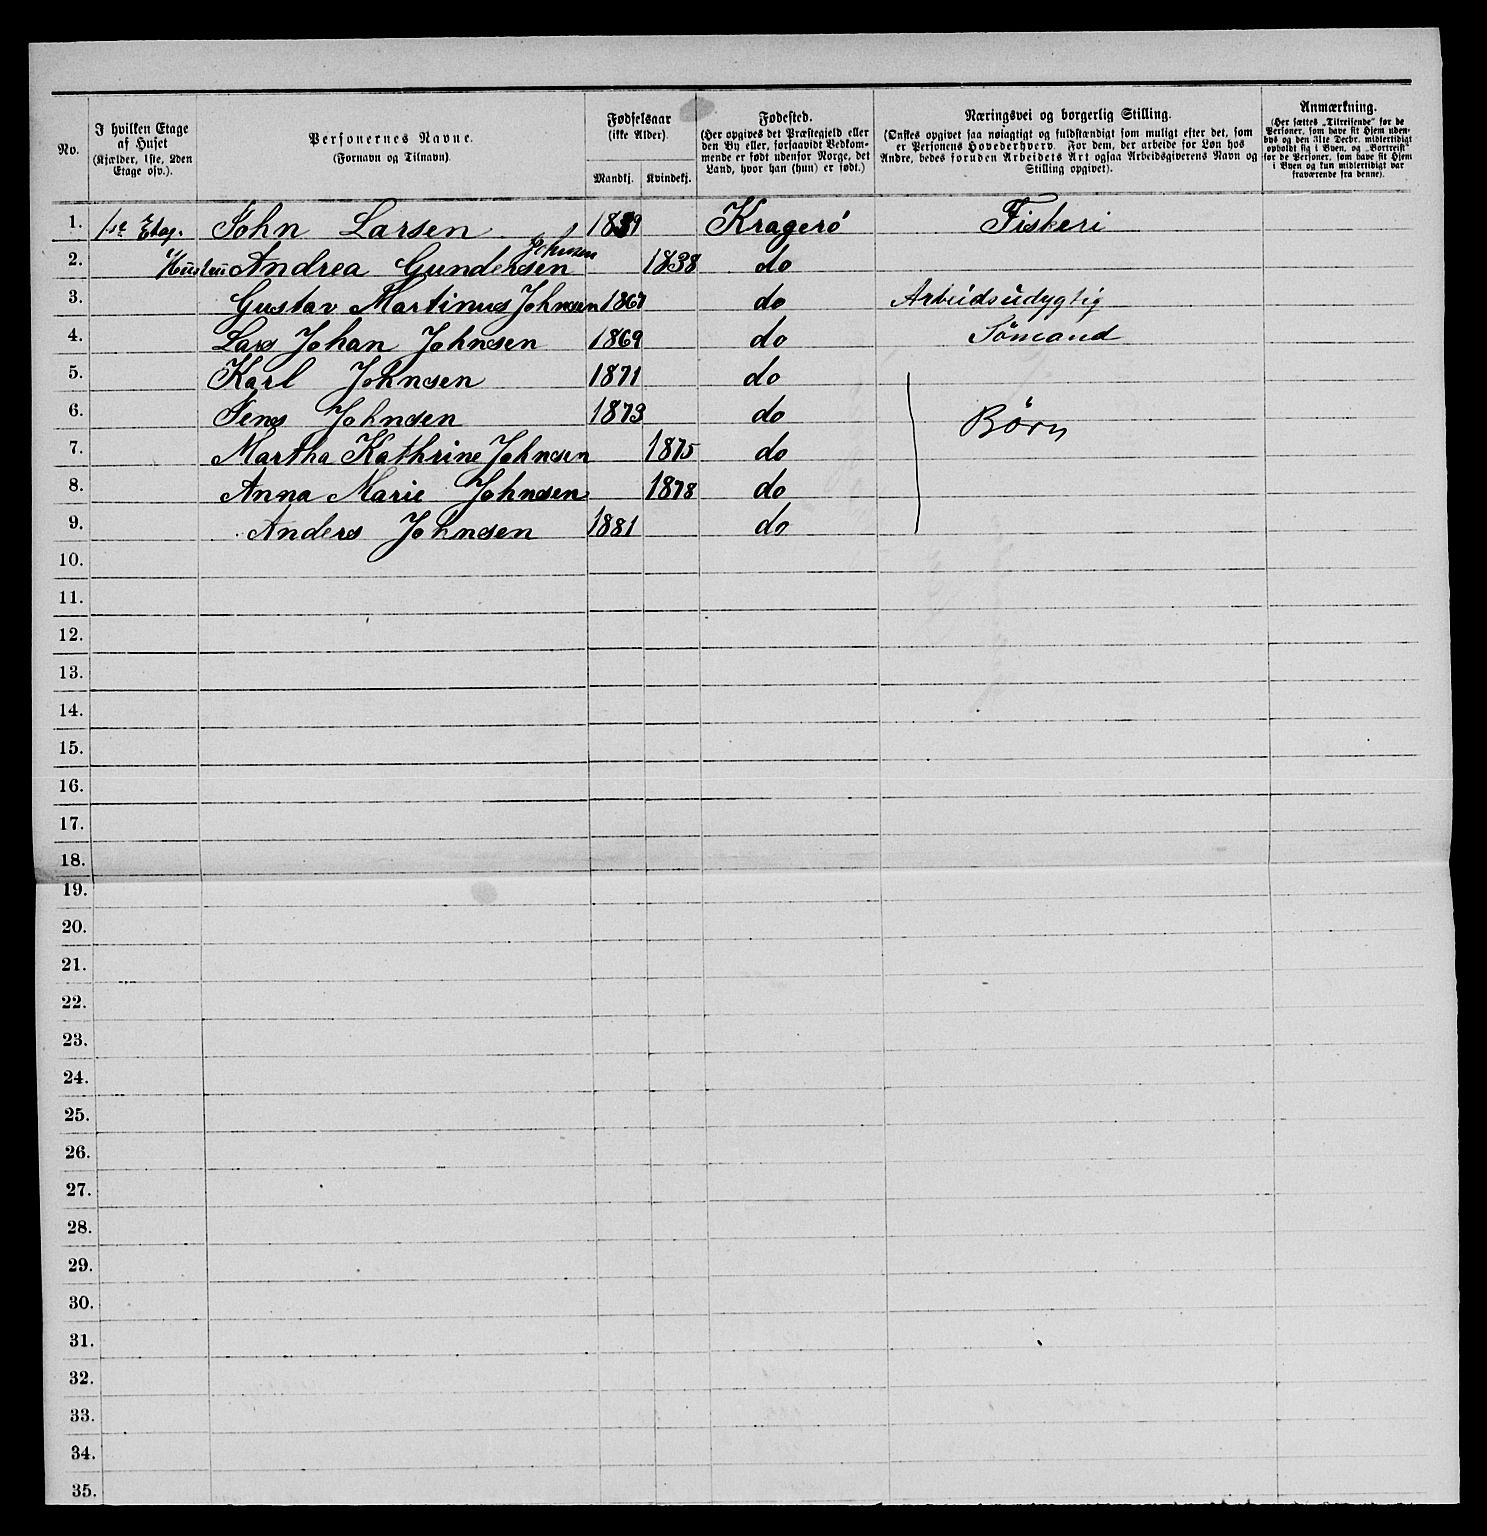 No.
I hvilken Etage
af Huset
(Kjælder, 1ste, 2den
Etage osv.).
Personernes Navne.
(Fornavn og Tilnavn)
Fødselsaar
(ikke Alder).
Mandkj. Kvindekj.
Fødested.
(Her opgives det Præstegjeld eller
den By eller, forsaavidt Vedkom-
mende er født udenfor Norge, det
Land, hvor han (hun) er født.)
Næringsvei og borgerlig Stilling.
(Ønskes opgivet saa nøiagtigt og fuldstændigt som muligt efter det, som
er Personens Hovederhverv. For dem, der arbeide for Løn hos
Andre, bedes foruden Arbeidets Art ogsaa Arbeidsgiverens Navn og
Stilling opgivet).
Anmærkning.
(Her sættes „Tilreisende“ for de
Personer, som have sit Hjem uden-
bys og den 31te Decbr. midlertidigt
opholdt sig i Byen, og „Bortreist“
for de Personer, som have sit Hjem
i Byen og kun midlertidigt var
fraværende fra denne).
1. 1ste Etag. John Larsen 1839 Kragerö Fiskeri
Johnsen
2. Hustru Andrea Gundersen 1838 do
3. Gustav Martinus Johnsen 1867 do Arbeidsudygtig
4. Lars Johan Johnsen 1869 do Sömand
5. Karl Johnsen 1871 do
6. Jens Johnsen 1873 do Börn
7. Martha Kathrine Johnsen 1875 do
8. Anna Marie Johnsen 1878 do
9. Anders Johnsen 1881 do
10.
11.
12.
13.
14.
15.
16.
17.
18.
19.
20.
21.
22.
23.
24.
25.
26.
27.
28.
29.
30.
31.
32.
33.
34.
35.